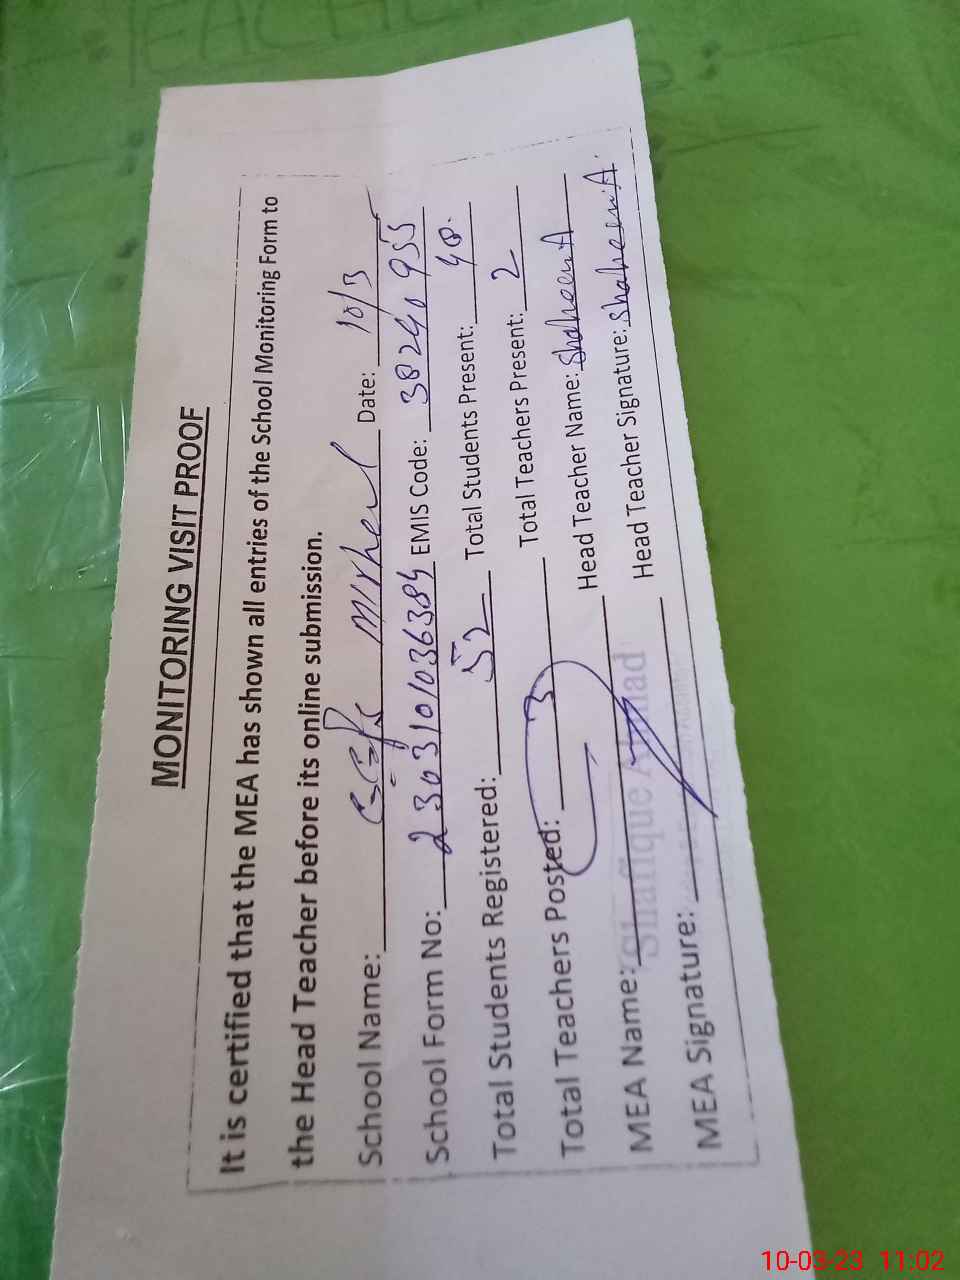 TEACHE
MONITORING VISIT PROOF
It is certified that the MEA has shown all entries of the School Monitoring Form to
the Head Teacher before its online submission.
School Name: GGPS Mirhel Date: 10/3
School Form No: 2303101036384 EMIS Code: 38240955
Total Students Registered: 52 Total Students Present: 40.
Total Teachers Posted: 3 Total Teachers Present: 2
MEA Name: Shafique Ahmad Head Teacher Name: Shaheen A
MEA Signature: Head Teacher Signature: Shaheen A.
10-03-23 11:02